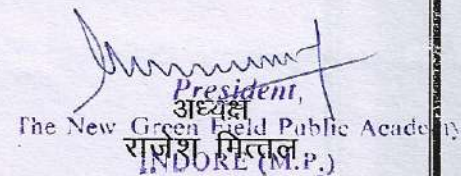 President,
अध्यक्ष
The New Green Field Public Academy
राजेश मित्तल
INDORE (M.P.)